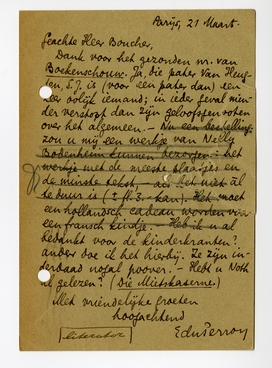 Parijs, 21 Maart.
Geachte Heer Boucher,
Dank voor het gezonden nr. van
Boekenschouw. Ja, die pater Van Heug-
ten, S.J. is (voor een pater dan) een
zeer oolijk iemand; in ieder geval min-
der verstopt dan zijn geloofsgenooten
over het algemeen. – Nu een bestelling:
zou u mij een werkje van Nelly
Bodenheim kunnen bezorgen: het
werkje met de meeste plaatjes en
de minste tekst, als het niet al
te duur is (± fl. 3.- kan). Het moet
een hollandsch cadeau worden voor
een fransch kindje. – Heb ik u al
bedankt voor de kinderkranten?
anders doe ik het hierbij. Ze zijn in-
derdaad nogal poover. – Hebt u Noth
gelezen? (Die Mietskaserne.)
Met vriendelijke groeten
hoogachtend
EduPerron
literator